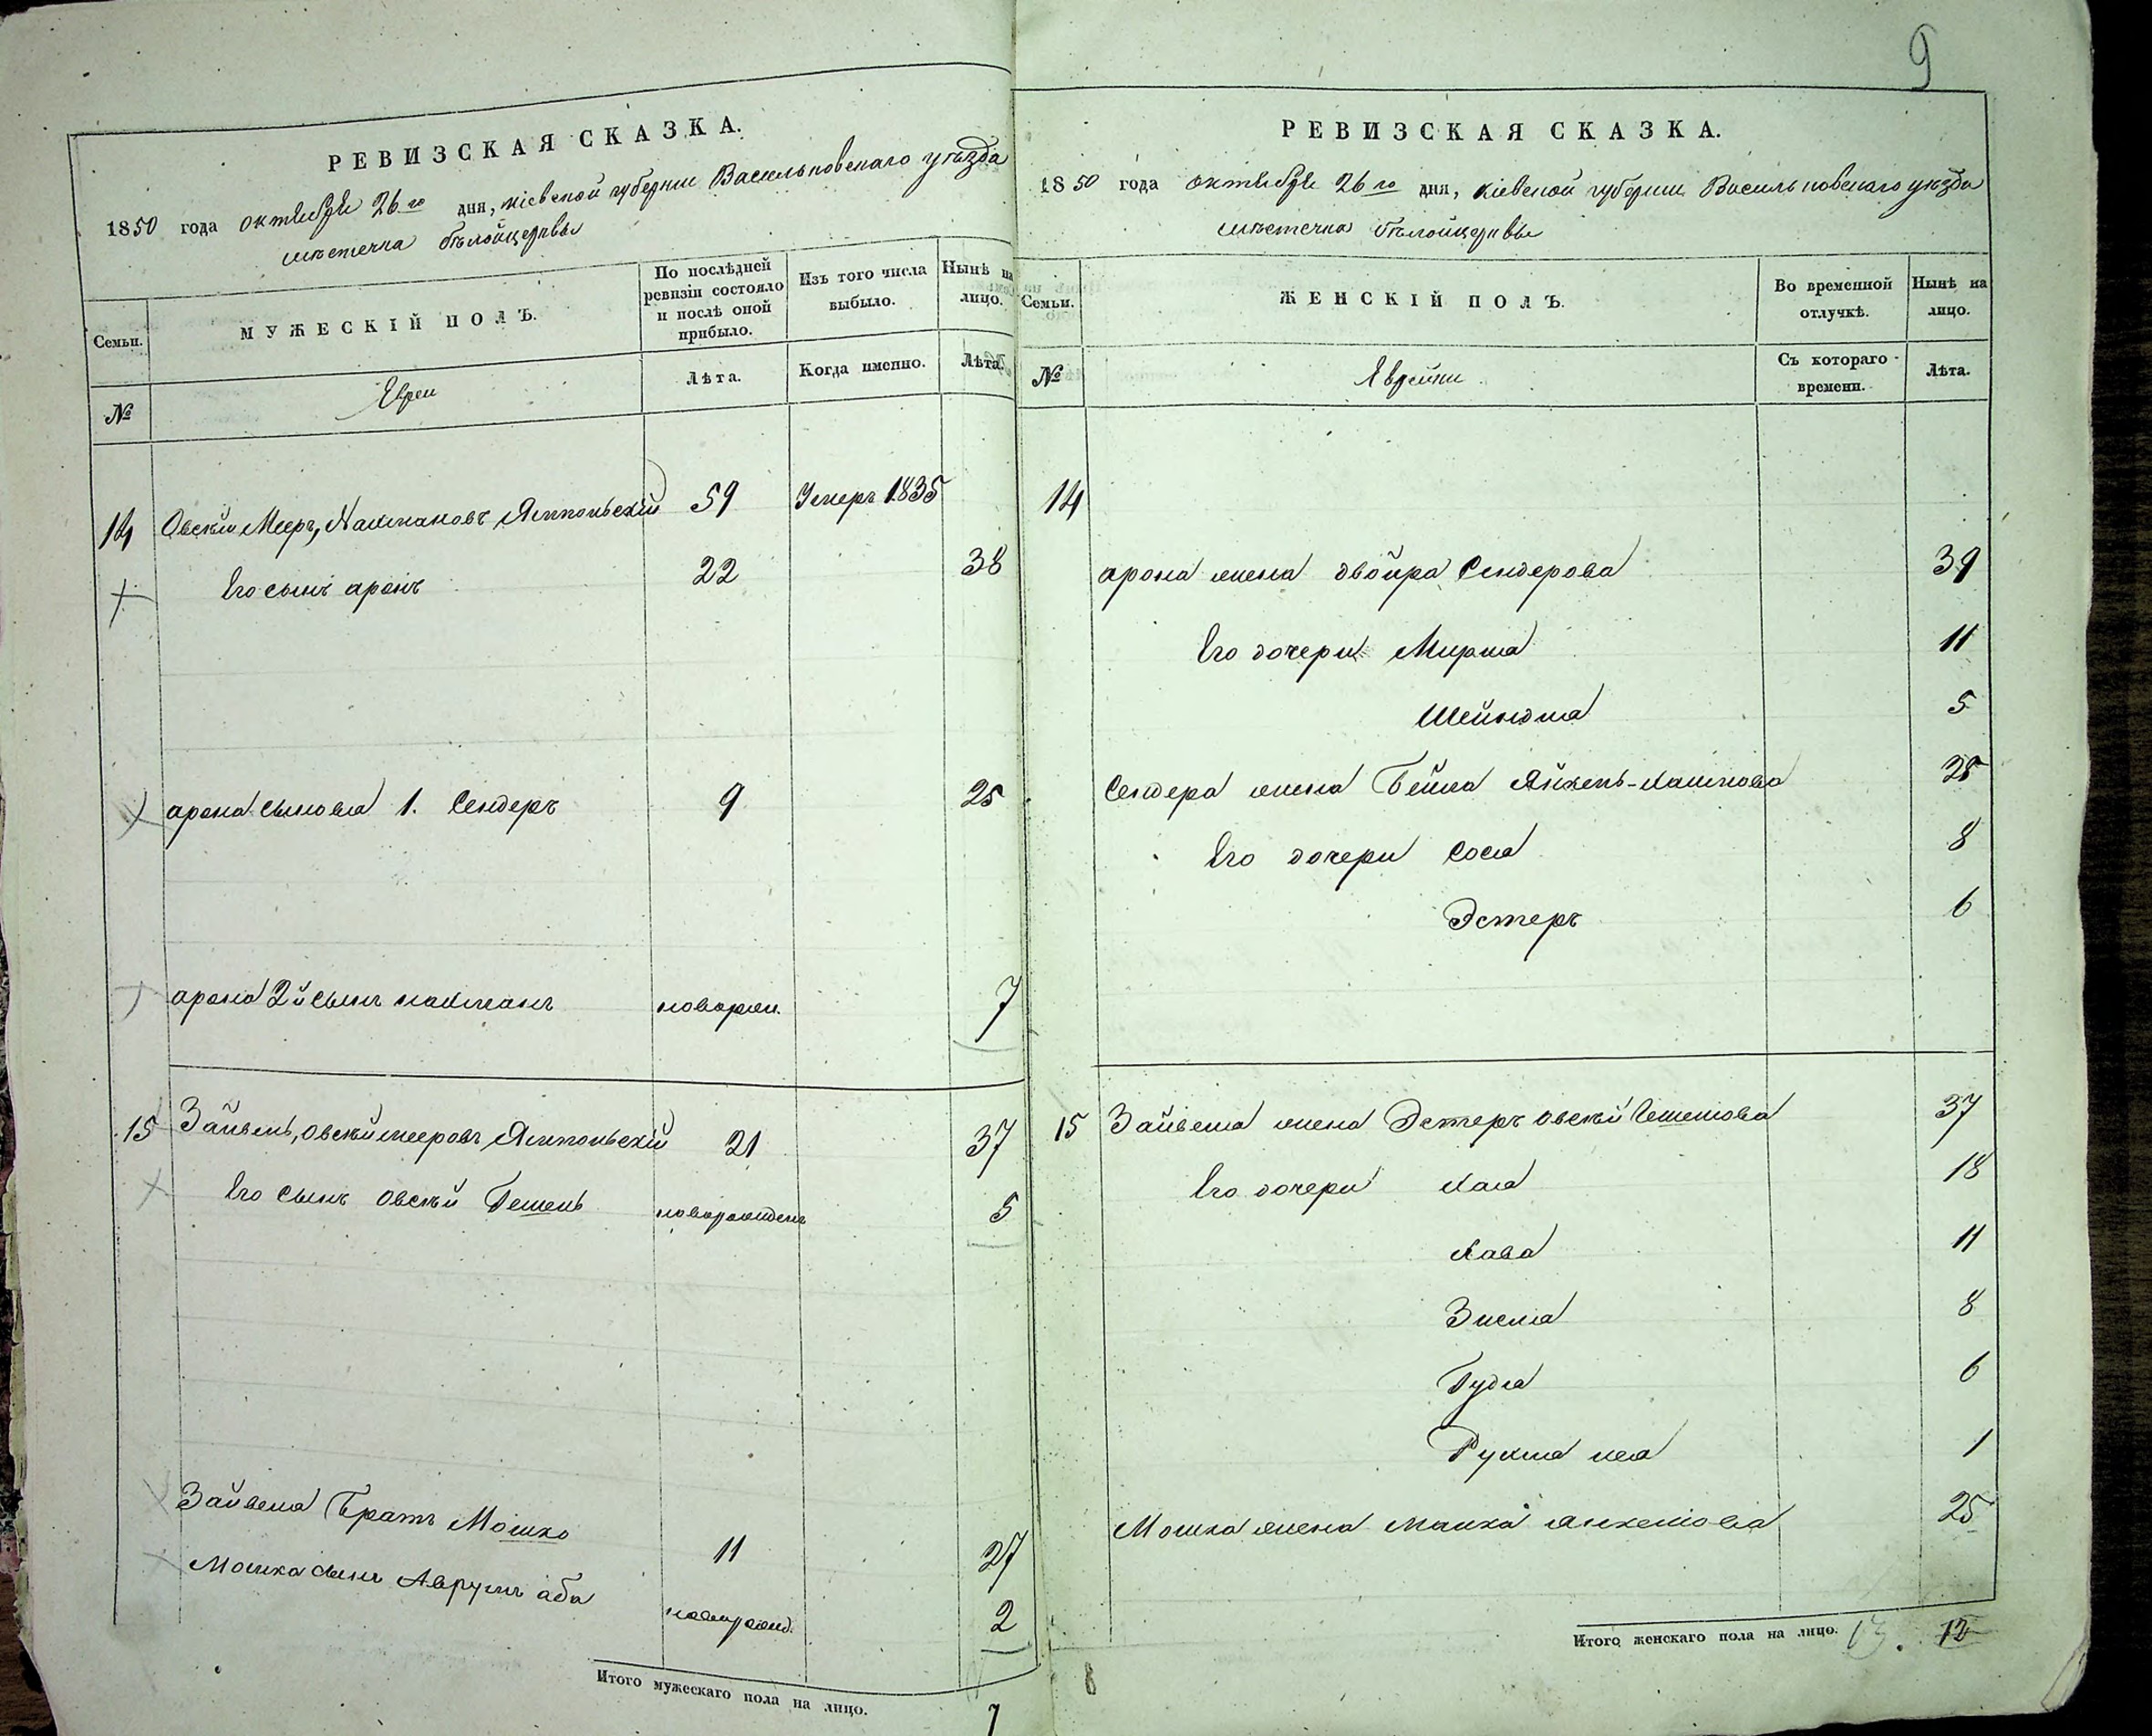 РЕВИЗСКАЯ СКАЗКА.
1850 года октября 26го дня, Кіевской губерніи Васильковскаго уѣзда
мѣстечка бѣлойцеркви
Семьи.
МУЖЕСКІЙ ПОЛЪ.
По послѣдней ревизіи состояло и послѣ оной прибыло.
Изъ того числа выбыло.
Нынѣ на лицо.
№
Евреи
Лѣта.
Когда именно.
Лѣта.
14 Овсѣй Мееръ, Нахмановъ Ямпольскій 59 Умеръ 1835
Его сынъ аронъ 22 38
арона сыновья 1. Сендеръ 9 25
арона 2й сынъ нахманъ новорож. 7
15 Зайвель, овсѣймееровъ Ямпольскій 21 37
Его сынъ овсѣй Гешель новорожденъ 5
Зайвеля Братъ Мошко 11 27
Мошка сынъ Аврумъ аба новорожд. 2
Итого мужескаго пола на лицо. 7
9
РЕВИЗСКАЯ СКАЗКА.
1850 года октября 26го дня, Кіевской губерніи Васильковскаго уѣзда
мѣстечка бѣлойцеркви
Семьи.
ЖЕНСКІЙ ПОЛЪ.
Во временной отлучкѣ.
Нынѣ на лицо.
№
Еврейки
Съ котораго времени.
Лѣта.
14
арона жена двойра Сендерова 39
Его дочери Мирля 11
Шейндля 5
Сендера жена Бейла 25
Его дочери Сося 8
Эстеръ 6
15 Зайвеля жена Эстеръ овсѣй Гешелова 37
Его дочери Хая 18
Хава 11
Зисля 8
Гудя 6
Рухля лея 1
Мошка жена малка янкелова 25
Итого женскаго пола на лицо. 13. 12